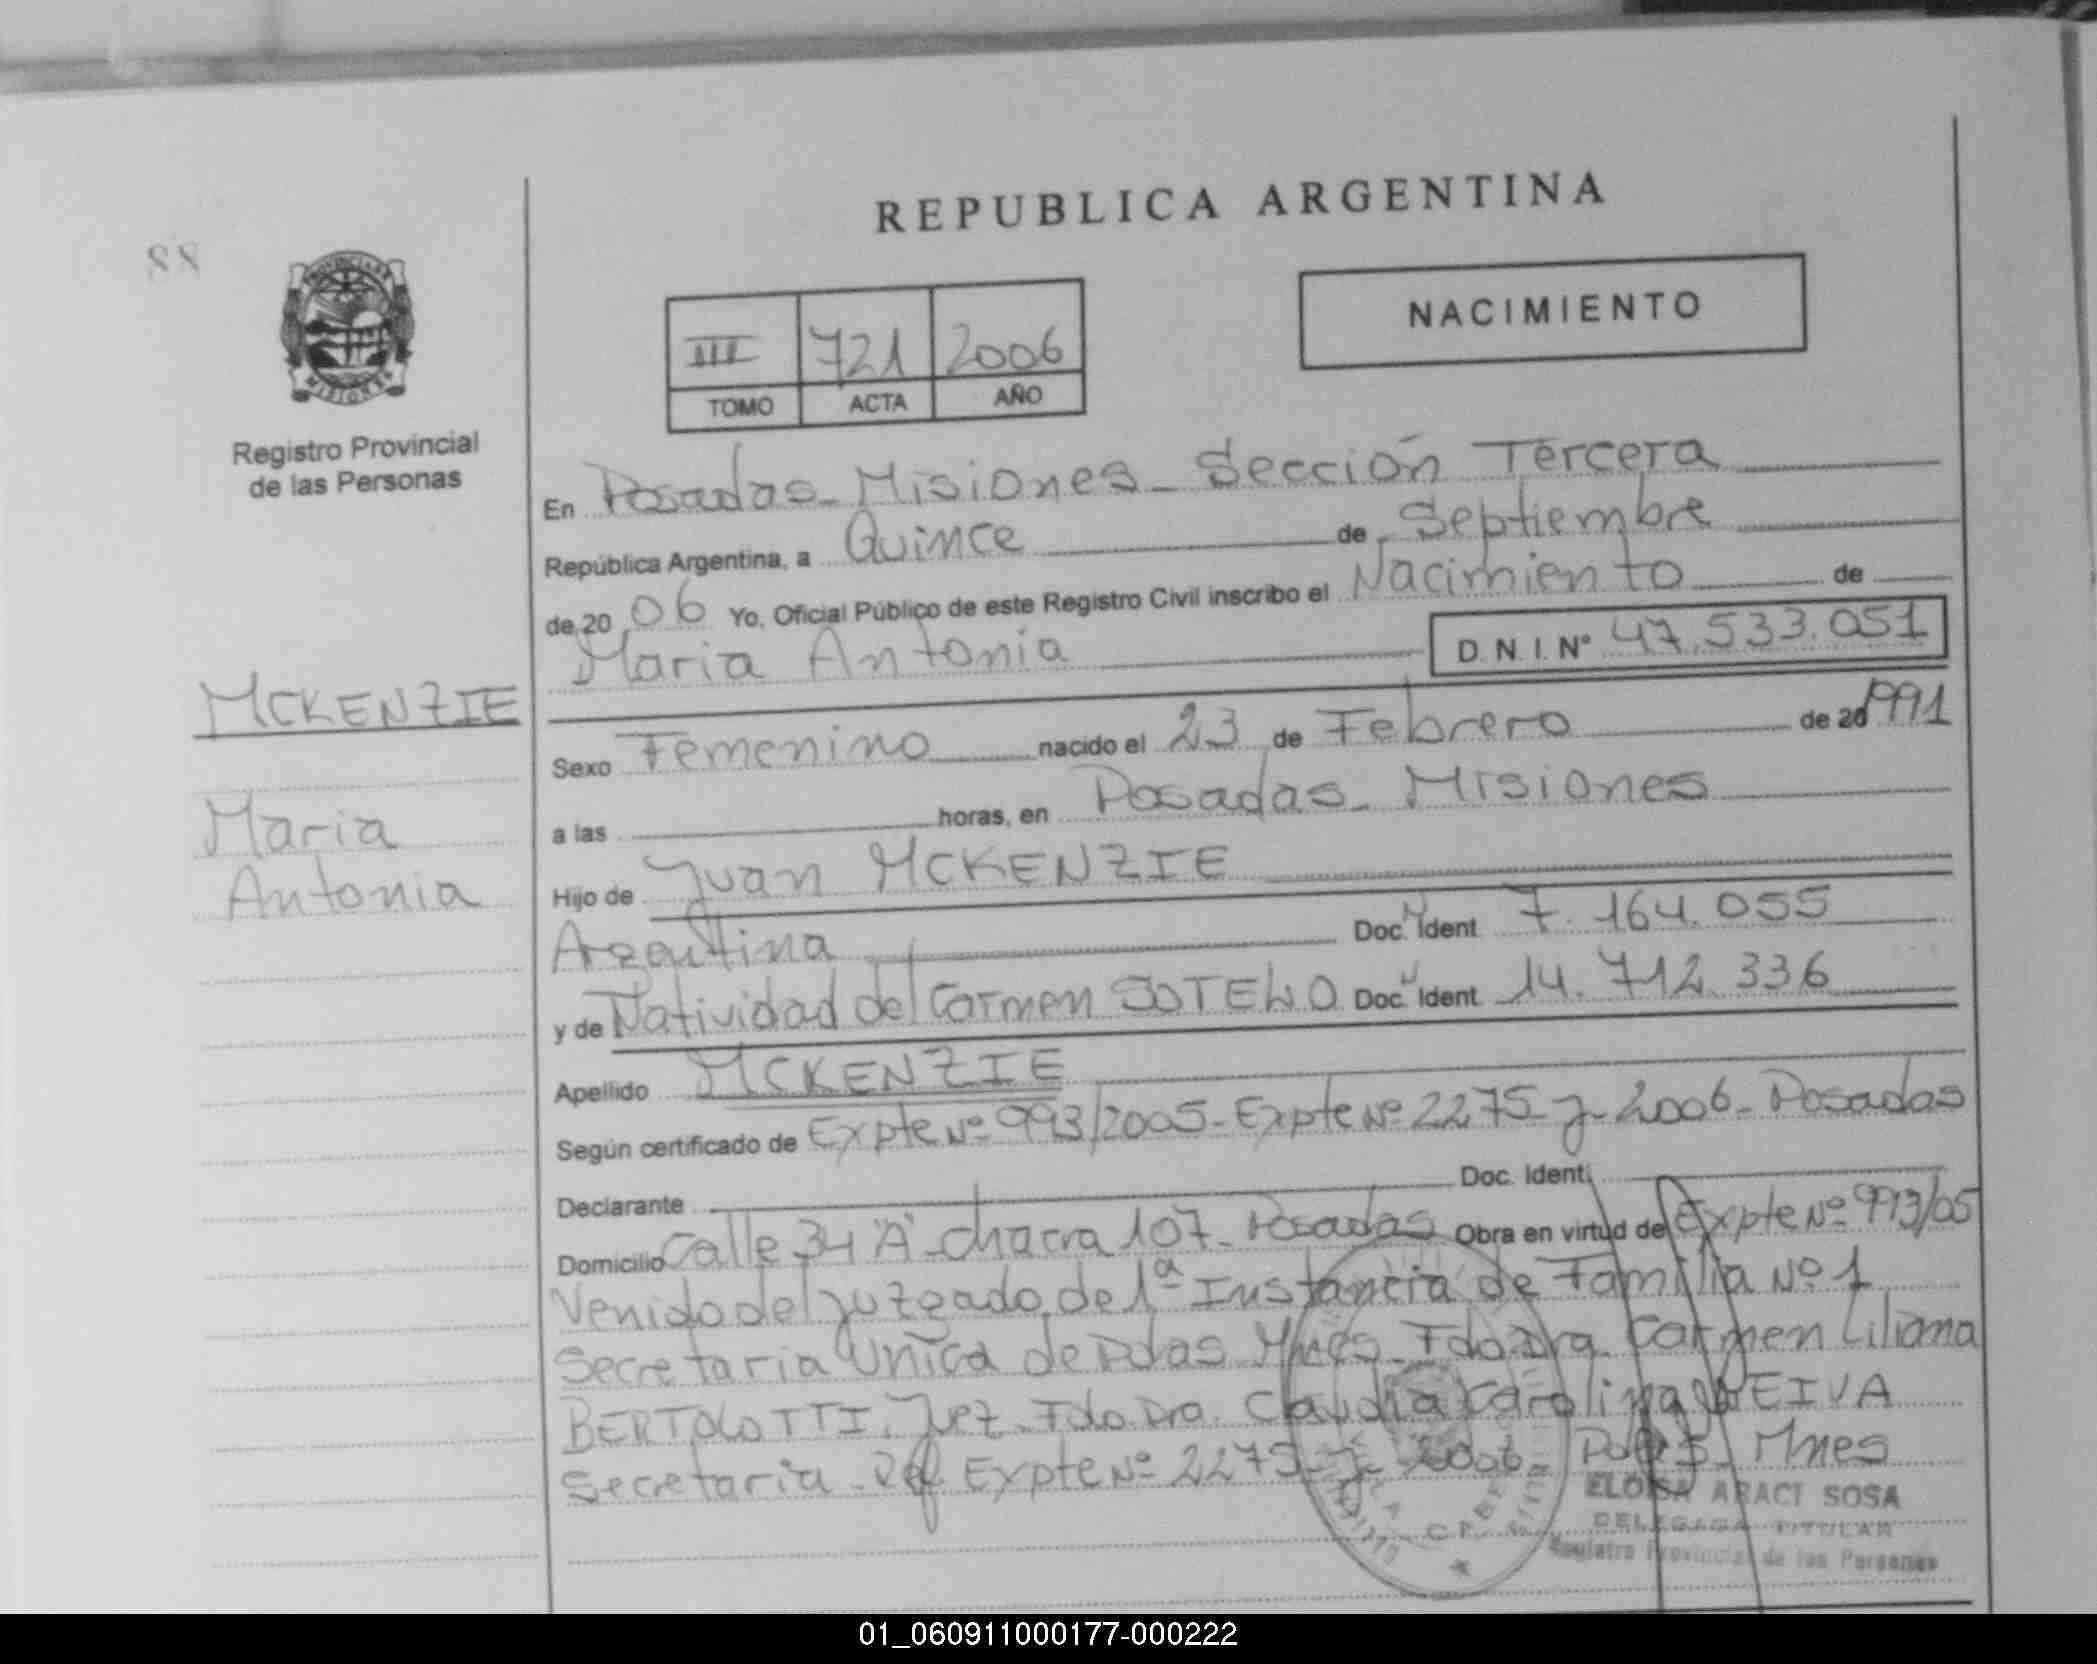 REPUBLICA ARGENTINA
88
NACIMIENTO
III 721 2006
TOMO ACTA AÑO
Registro Provincial
de las Personas
En Posadas - Misiones - Sección Tercera
República Argentina, a Quince de Septiembre
de 20 06 Yo, Oficial Público de este Registro Civil inscribo el Nacimiento de
Maria Antonia D.N.I. Nº 47.533.051
MCKENZIE
Maria
Antonia
Sexo Femenino nacido el 23 de Febrero de 20 1991
a las horas, en Posadas - Misiones
Hijo de Juan MCKENZIE
Argentina Doc. Ident. 7.164.055
y de Natividad del Carmen SOTELO Doc. Ident. 14.712.336
Apellido MCKENZIE
Según certificado de Expte Nº 993/2005 - Expte Nº 2275 - J - 2006 - Posadas
Declarante Doc. Ident.
Domicilio Calle 34 "A" - Chacra 107 - Posadas Obra en virtud de Expte Nº 993/05
Venido del Juzgado de 1ª Instancia de Familia Nº 1
Secretaria Unica de Pdas Mnes - Fdo Dra. Carmen Liliana
BERTOLOTTI, Juez - Fdo Dra. Claudia Carolina LEIVA
Secretaria - Ref Expte Nº 2275 - J - 2006 - Pdas - Mnes
ELOISA ARACI SOSA
DELEGADA TITULAR
Registro Provincial de las Personas
01_060911000177-000222